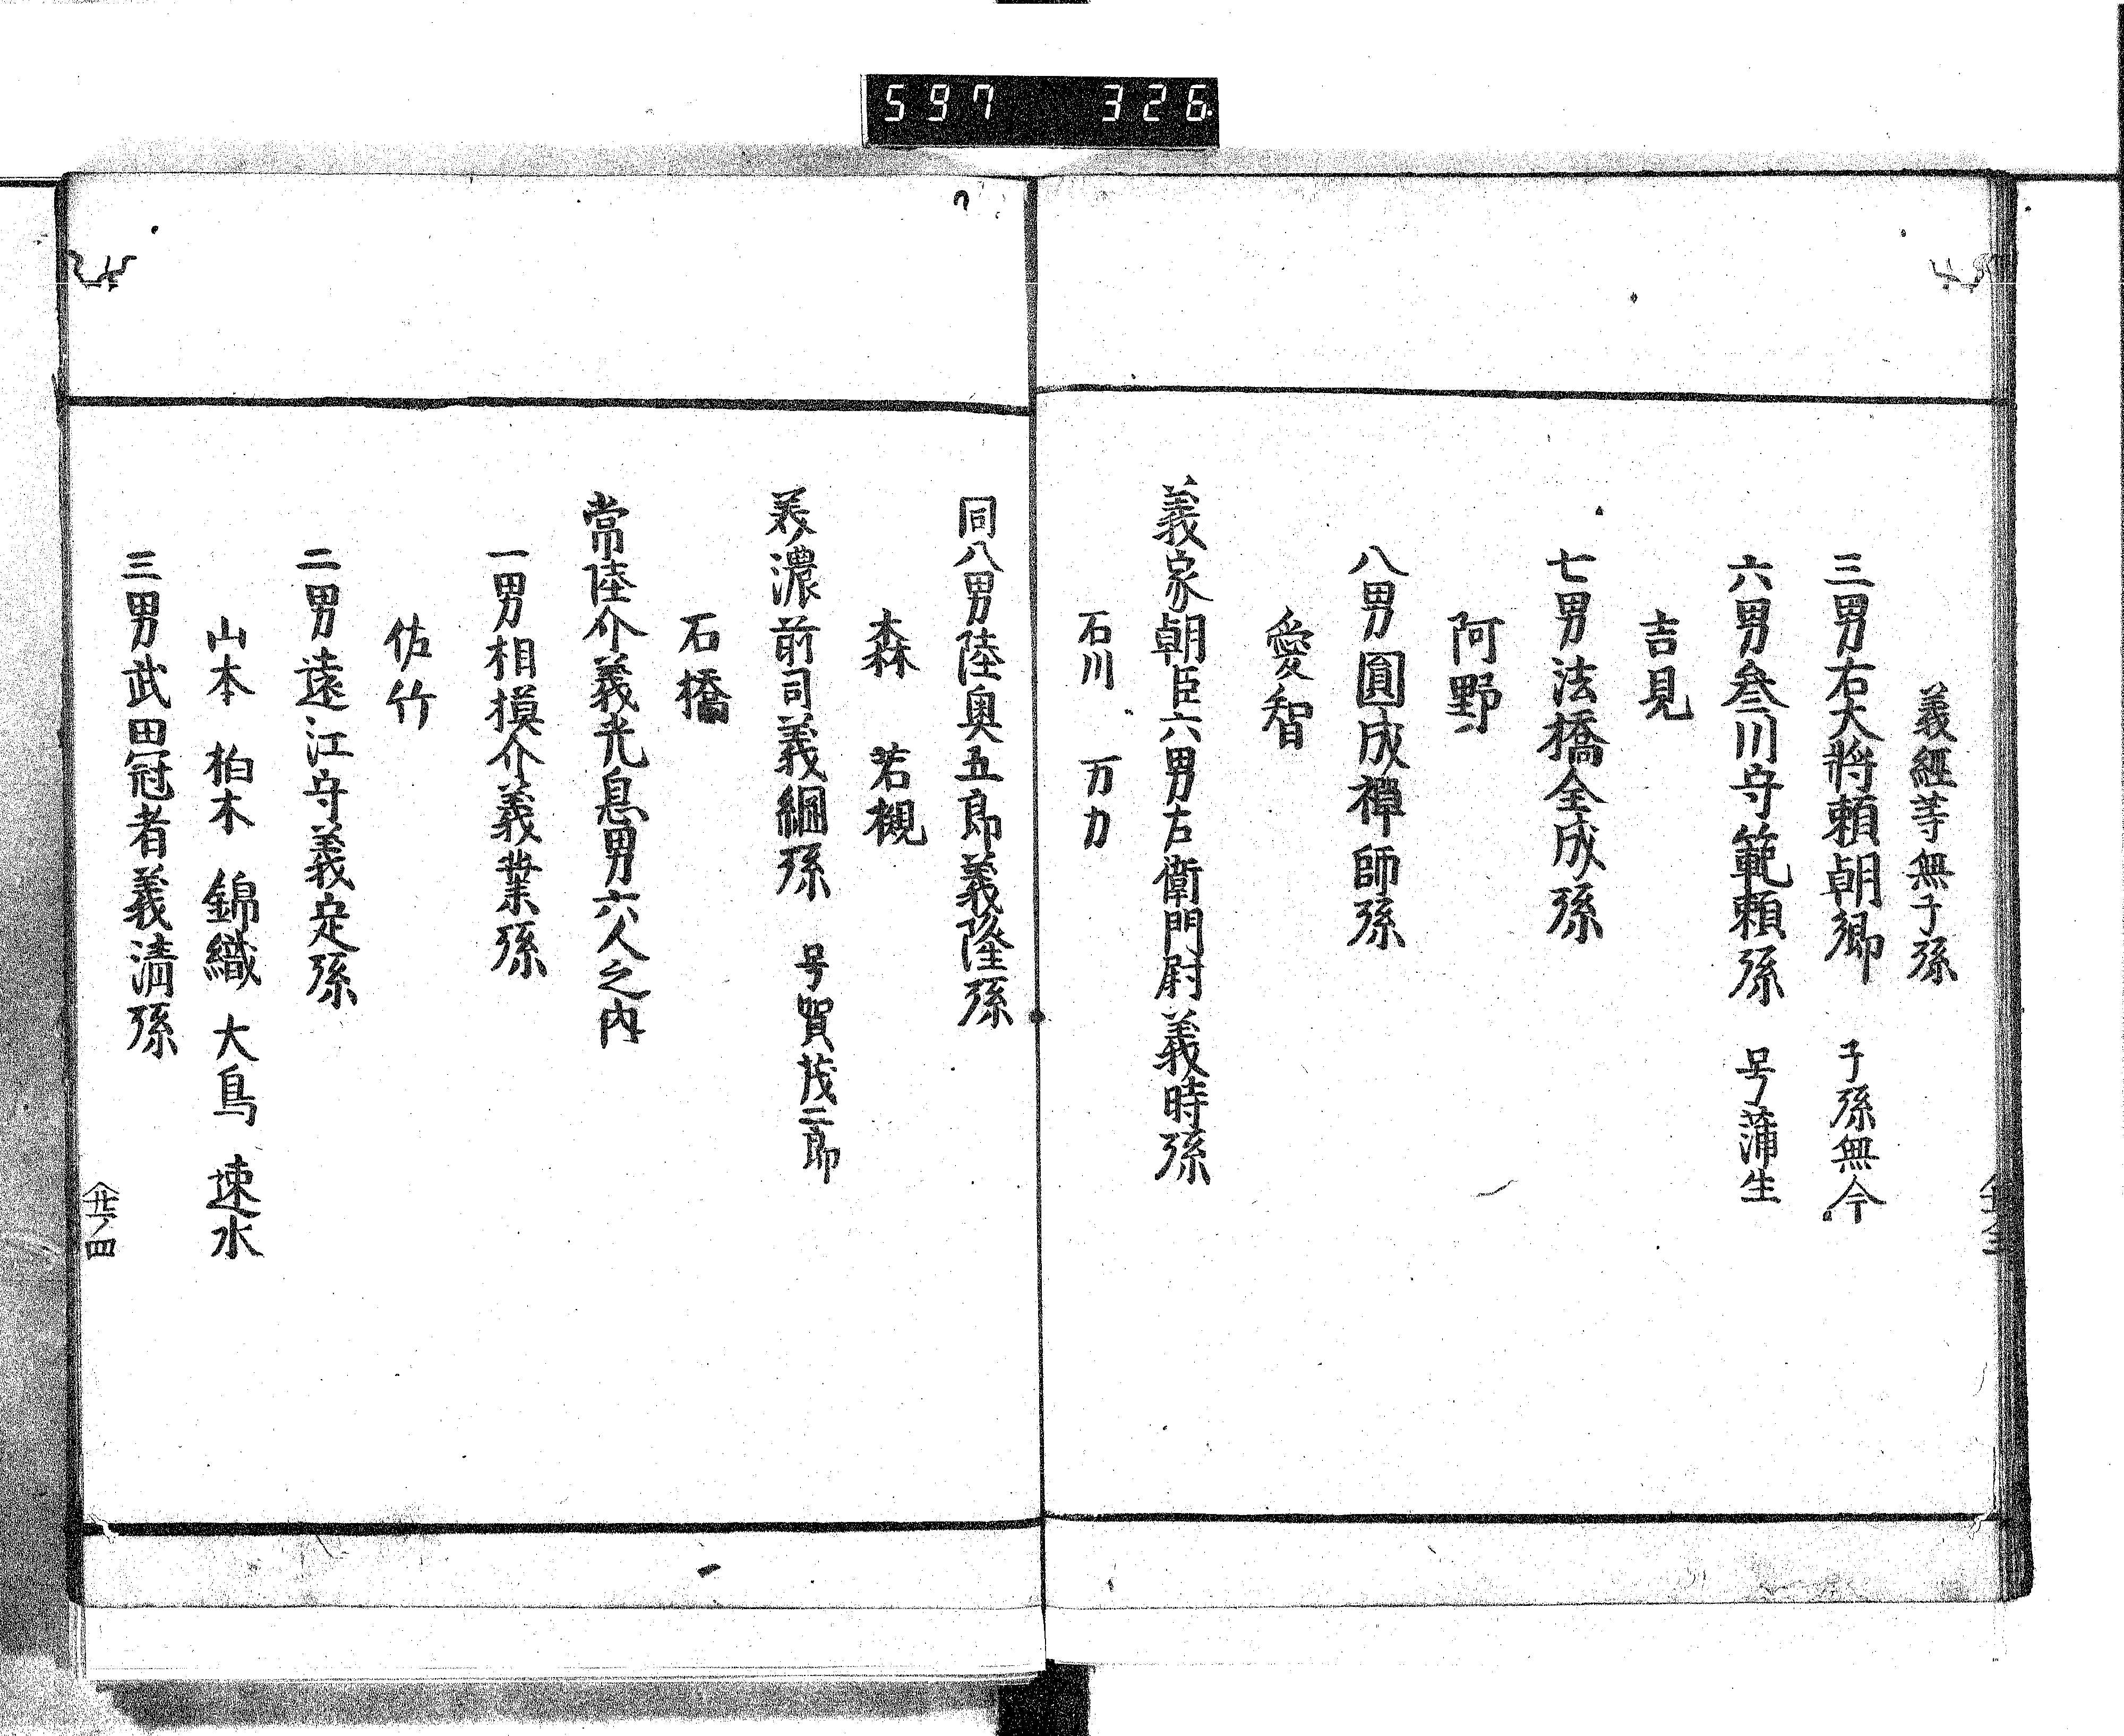 597 326
義經等無子孫
三男右大將頼朝卿 子孫無今
六男叄川守範頼孫 号蒲生
吉見
七男法橋全成孫
阿野
八男圓成禪師孫
愛智
義家朝臣六男左衛門尉義時孫
石川 万力
同八男陸奥五郎義隆孫
森 若槻
美濃前司義綱孫 号賀茂二郎
石橋
常陸介義光息男六人之内
一男相摸介義業孫
佐竹
二男遠江守義定孫
山本 柏木 錦織 大鳥 速水
三男武田冠者義清孫
四